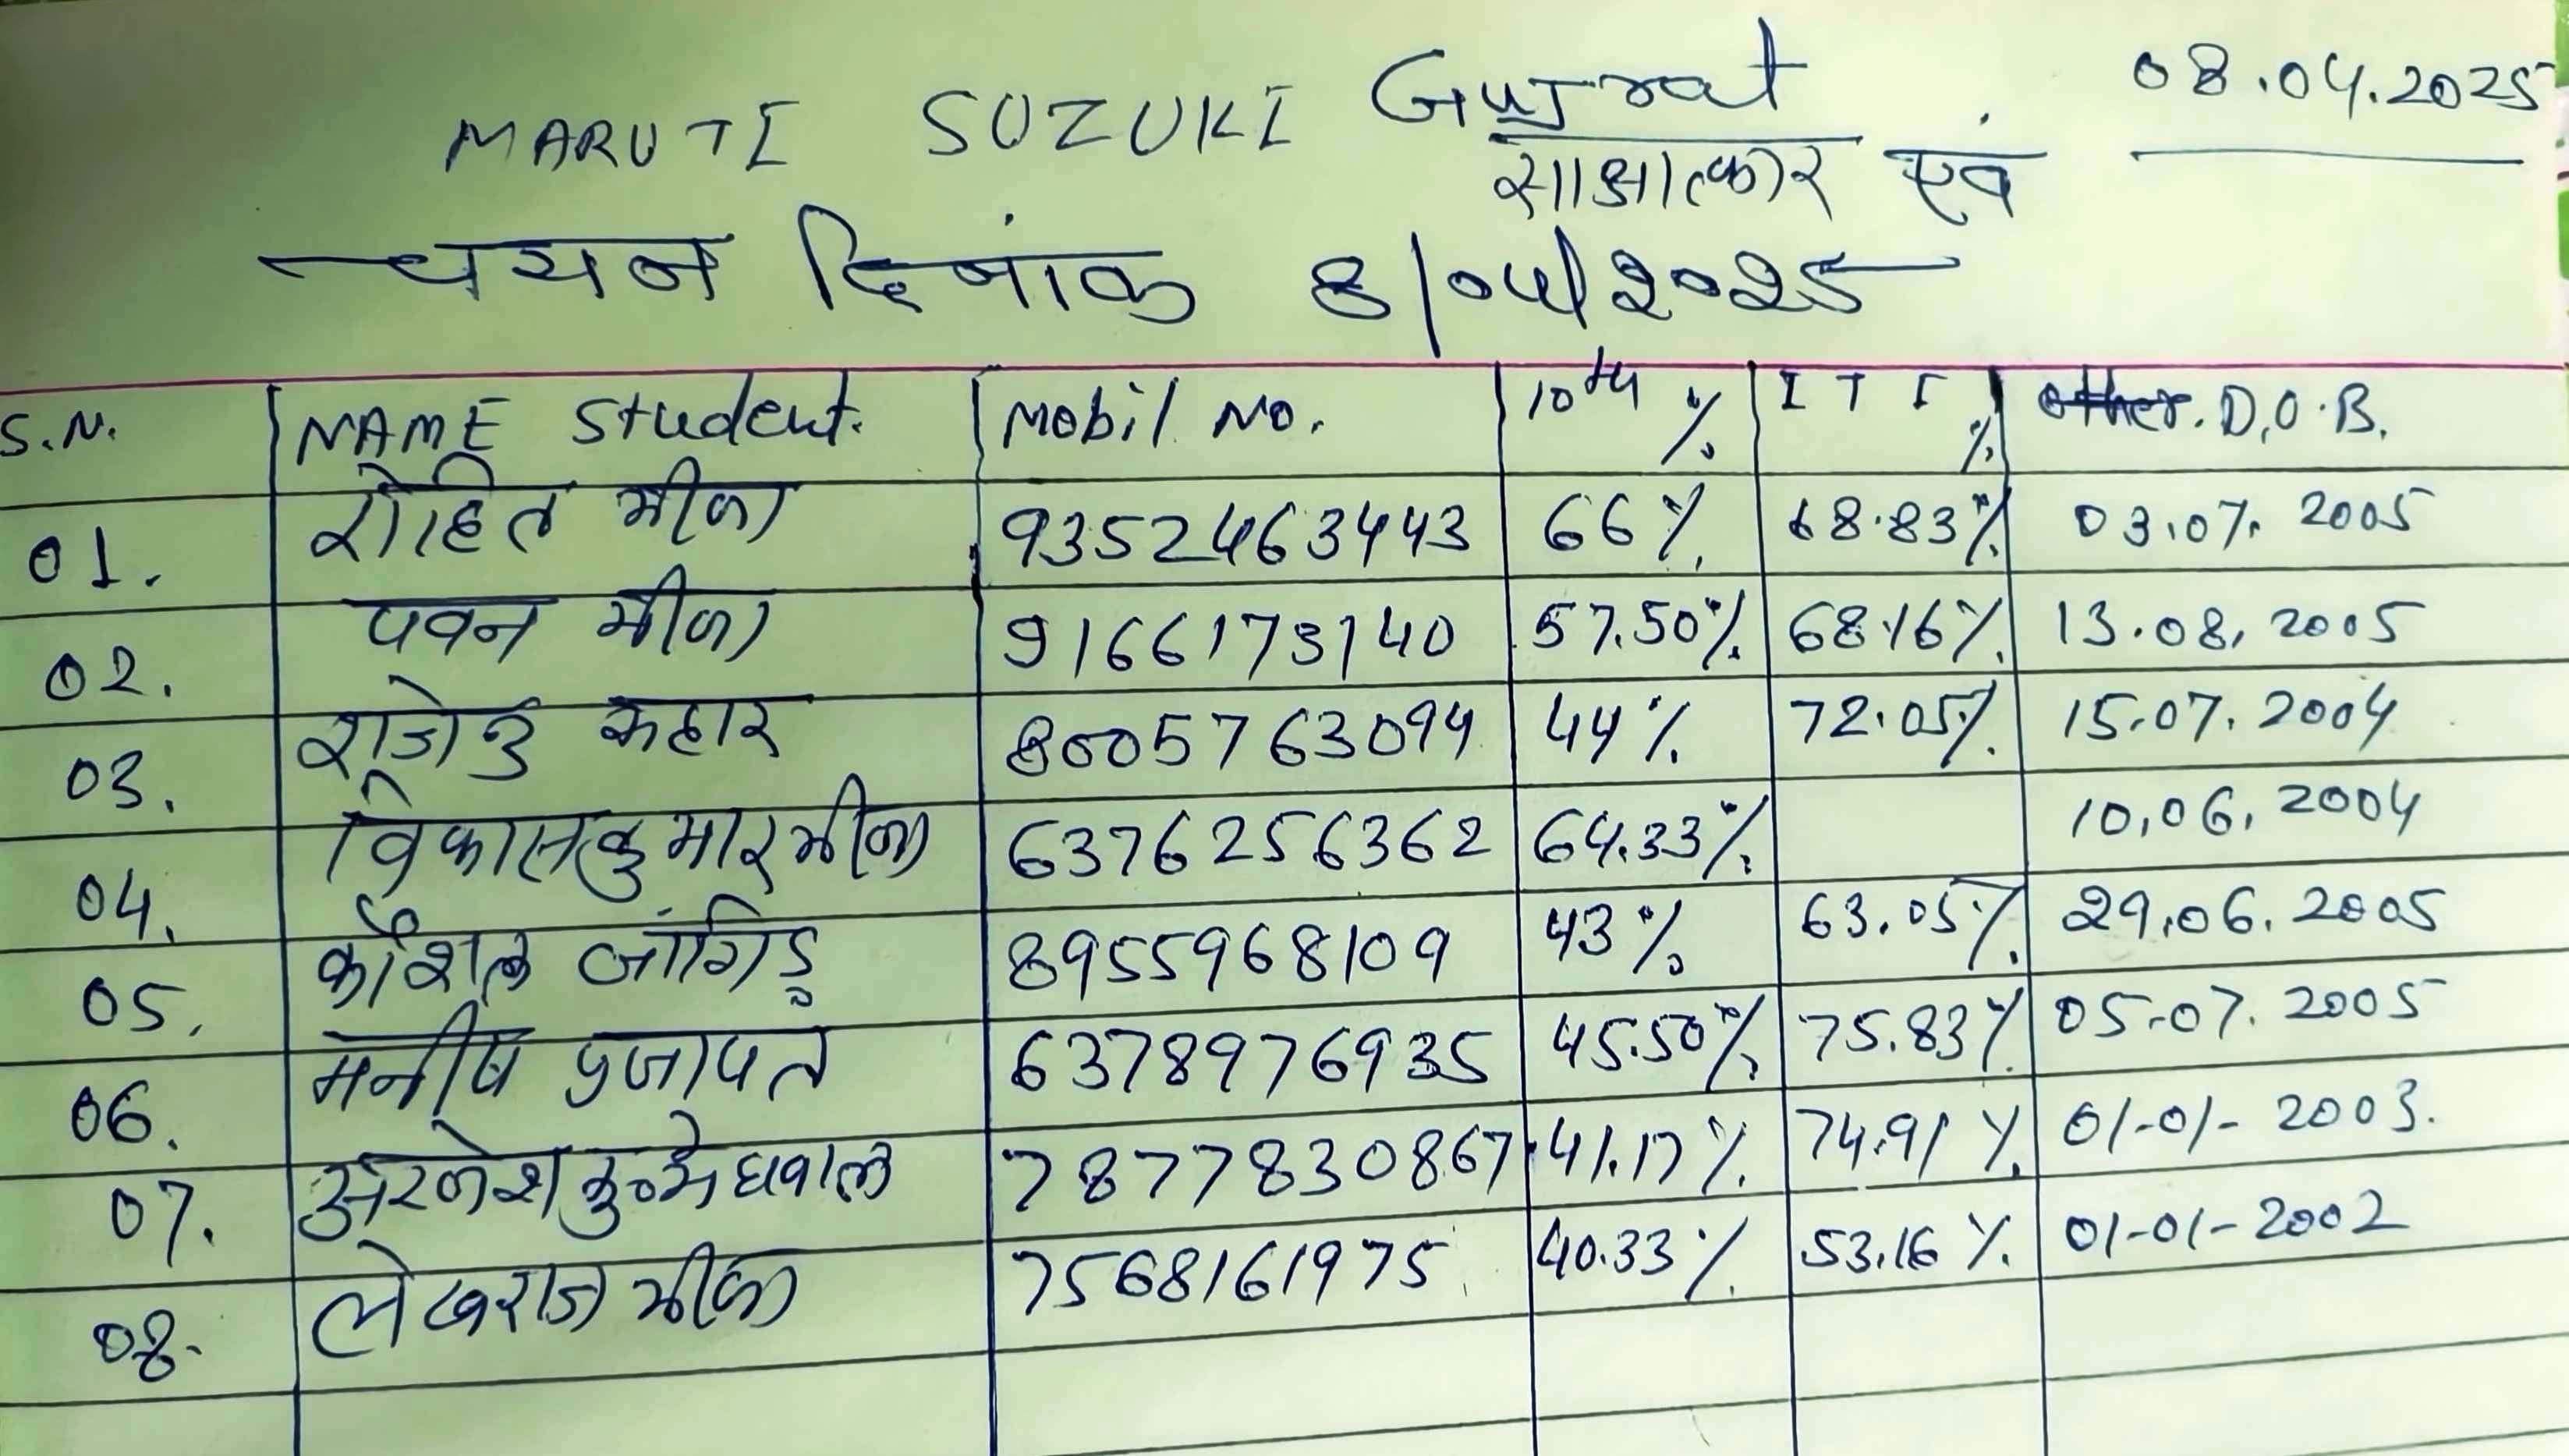 08.04.2025
MARUTI SUZUKI Gujrat
साक्षात्कार एवं
चयन दिनांक 8/04/2025
S.N. NAME Student. Mobil No. 10th % ITI % D.O.B.
01. रोहित मीणा 9352463443 66% 68.83% 03.07.2005
02. पवन मीणा 9166173140 57.50% 68.16% 13.08.2005
03. कहार 8005763094 44% 72.05% 15.07.2004
04. विकास कुमार मीणा 6376256362 64.33% 10.06.2004
05. कौशल जांगिड़ 8955968109 43% 63.05% 29.06.2005
06. मनीष प्रजापत 6378976935 45.50% 75.83% 05.07.2005
07. कु० मेघवाल 7877830867 41.17% 74.91% 01-01-2003.
08. लेखराज मीणा 7568161975 40.33% 53.16% 01-01-2002